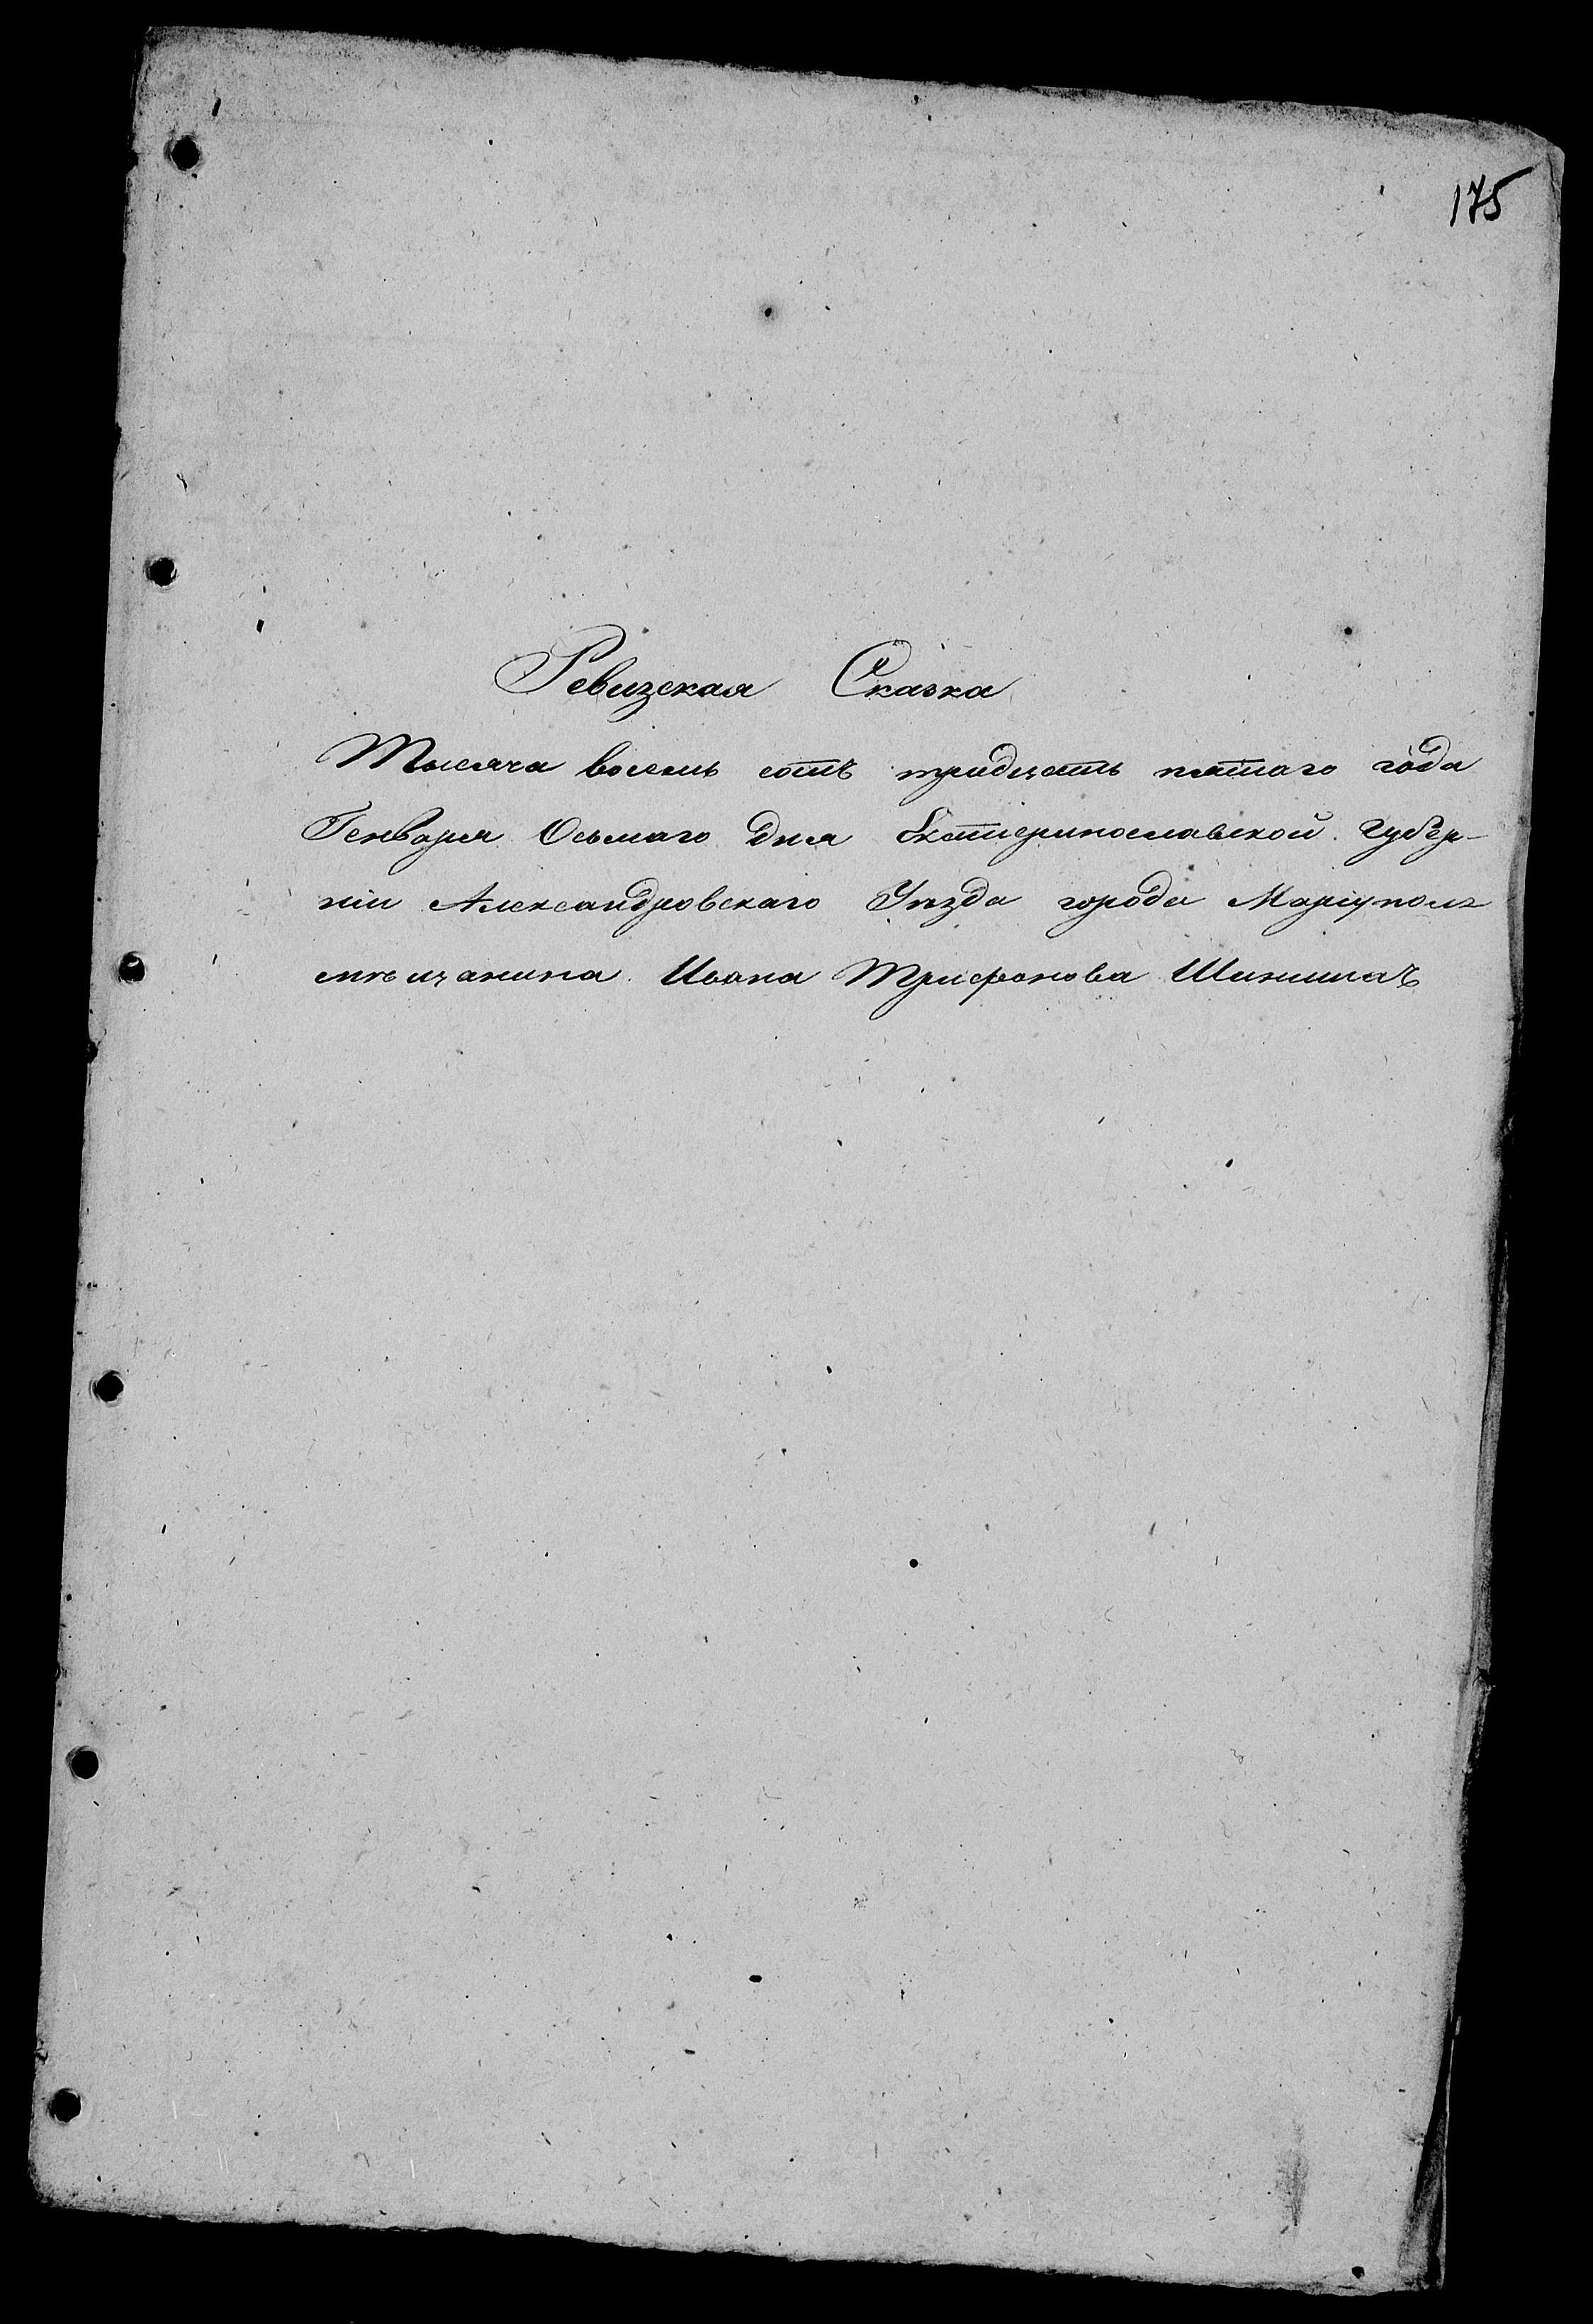 175
Ревизская Сказка
Тысяча восемь сотъ тридцать пятаго года
Генваря Осьмаго дня Екатеринославской Губер-
ніи Александровскаго Уѣзда города Маріупол
мѣщанина Ивана Трифонова